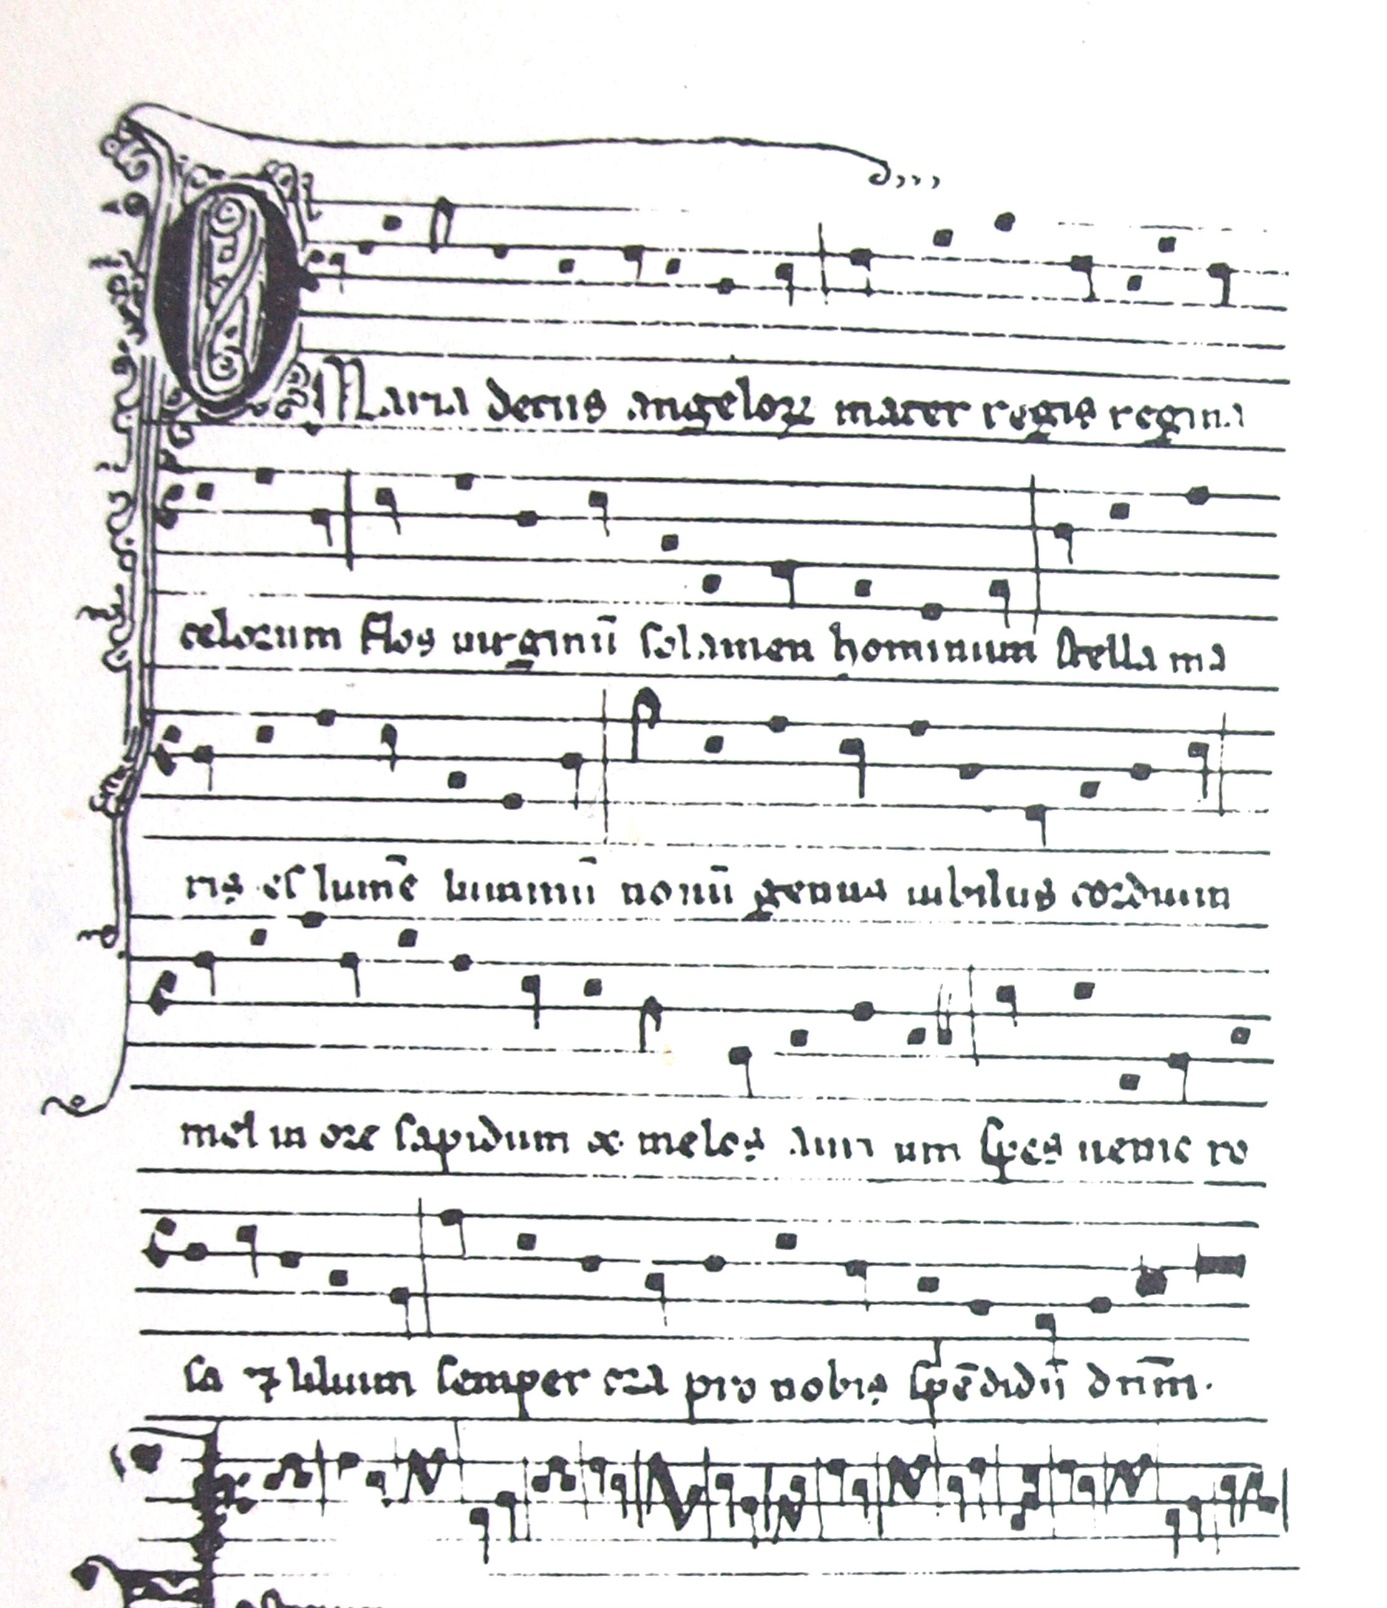 O Maria decus angeloꝝ mater regis regina
celorum flos uirginū solamen hominum stella ma
ris es lumē luminū nouū genus iubilus cordium
mel in ore sapidum & melos auri um spes uenie ro
sa ⁊ lilium semper ora pro nobis spēdidū dn̄m.